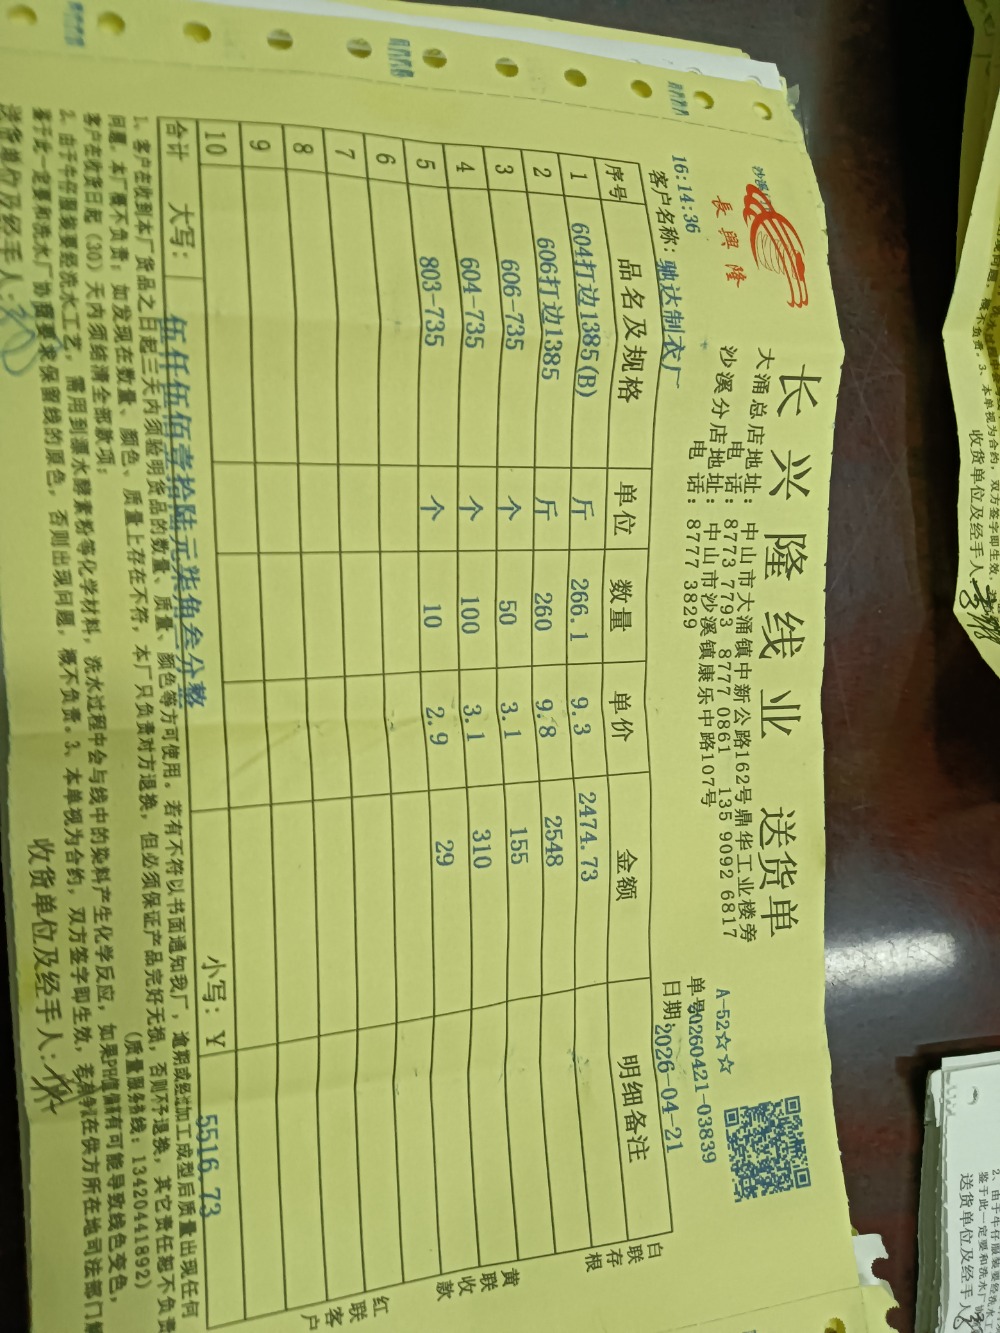 长兴隆线业 送货单
長興隆
大涌总店地址：中山市大涌镇中新公路162号鼎华工业楼旁
电话：8773 7793 8777 0861 135 9092 6817
沙溪分店地址：中山市沙溪镇康乐中路107号
电话：8777 3829
A-52☆☆
16:14:36
单号20260421-03839
客户名称：驰达制衣厂
日期：2026-04-21
序号 品名及规格 单位 数量 单价 金额 明细备注
1 604打边1385(B) 斤 266.1 9.3 2474.73
2 606打边1385 斤 260 9.8 2548
3 606-735 个 50 3.1 155
4 604-735 个 100 3.1 310
5 803-735 个 10 2.9 29
6
7
8
9
10
合计 大写：伍仟伍佰壹拾陆元柒角叁分整 小写：Y 5516.73
白联存根
黄联收款
红联客户
1、客户在收到本厂货品之日起三天内须验明货品的数量、质量、颜色等方可使用。若有不符以书面通知我厂，逾期或经过加工成型后质量出现任何
问题，本厂概不负责；如发现在数量、颜色、质量上存在不符，本厂只负责对方退换，但必须保证产品完好无损，否则不予退换，其它责任恕不负责
客户在收货日起（30）天内须结清全部款项； （质量服务热线：13420441892）
2、由于牛仔服装要经洗水工艺，需用到漂水酵素粉等化学材料，洗水过程中会与线中的染料产生化学反应，如果PH值偏高有可能导致线色变色，
鉴于此一定要和洗水厂协商要求保留线的原色，否则出现问题，概不负责。3、本单视为合约，双方签字即生效，若有争议在供方所在地司法部门解
送货单位及经手人： 收货单位及经手人：
收货单位及经手人
送货单位及经手人